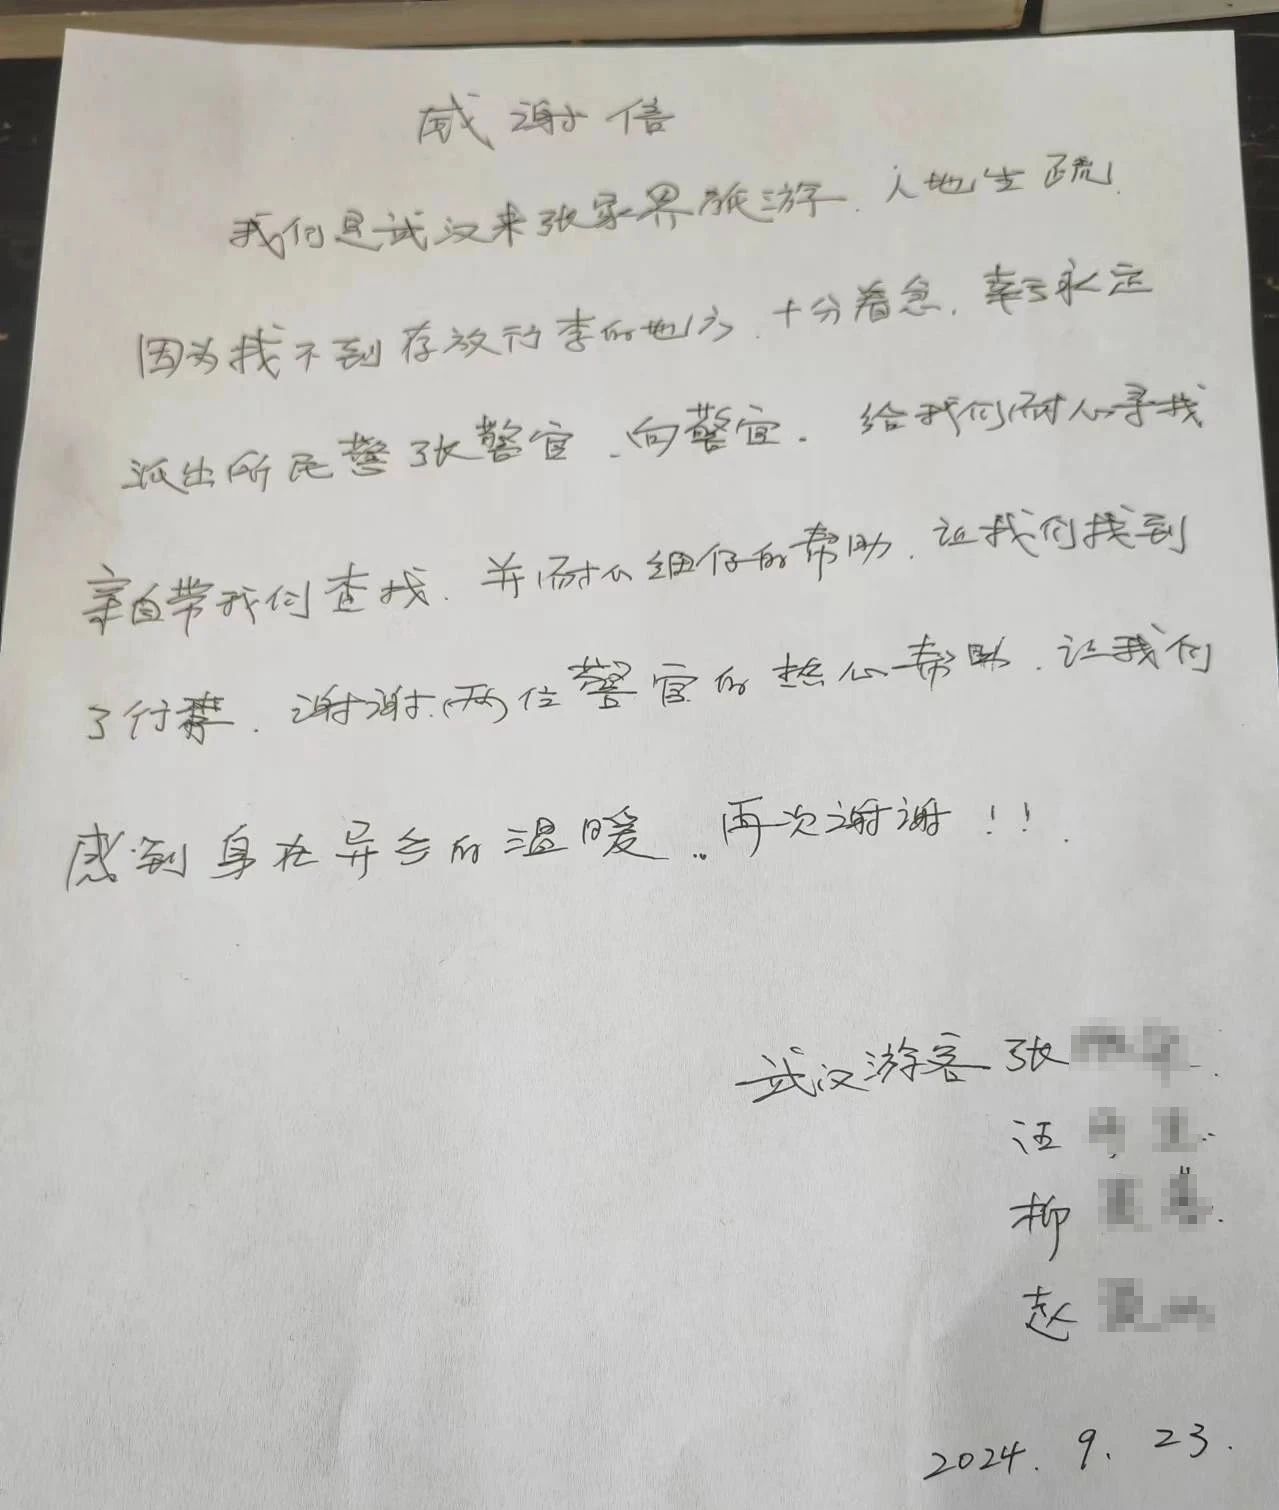 感谢信
我们是武汉来张家界旅游.人地生疏.
因为找不到存放行李的地方.十分着急.幸亏永定
派出所民警张警官、向警官.给我们耐心寻找
亲自带我们查找.并耐心细仔的帮助.让我们找到
了行李.谢谢(两)位警官的热心帮助.让我们
感到身在异乡的温暖..再次谢谢!!.
武汉游客张
汪
柳
赵
2024.9.23.